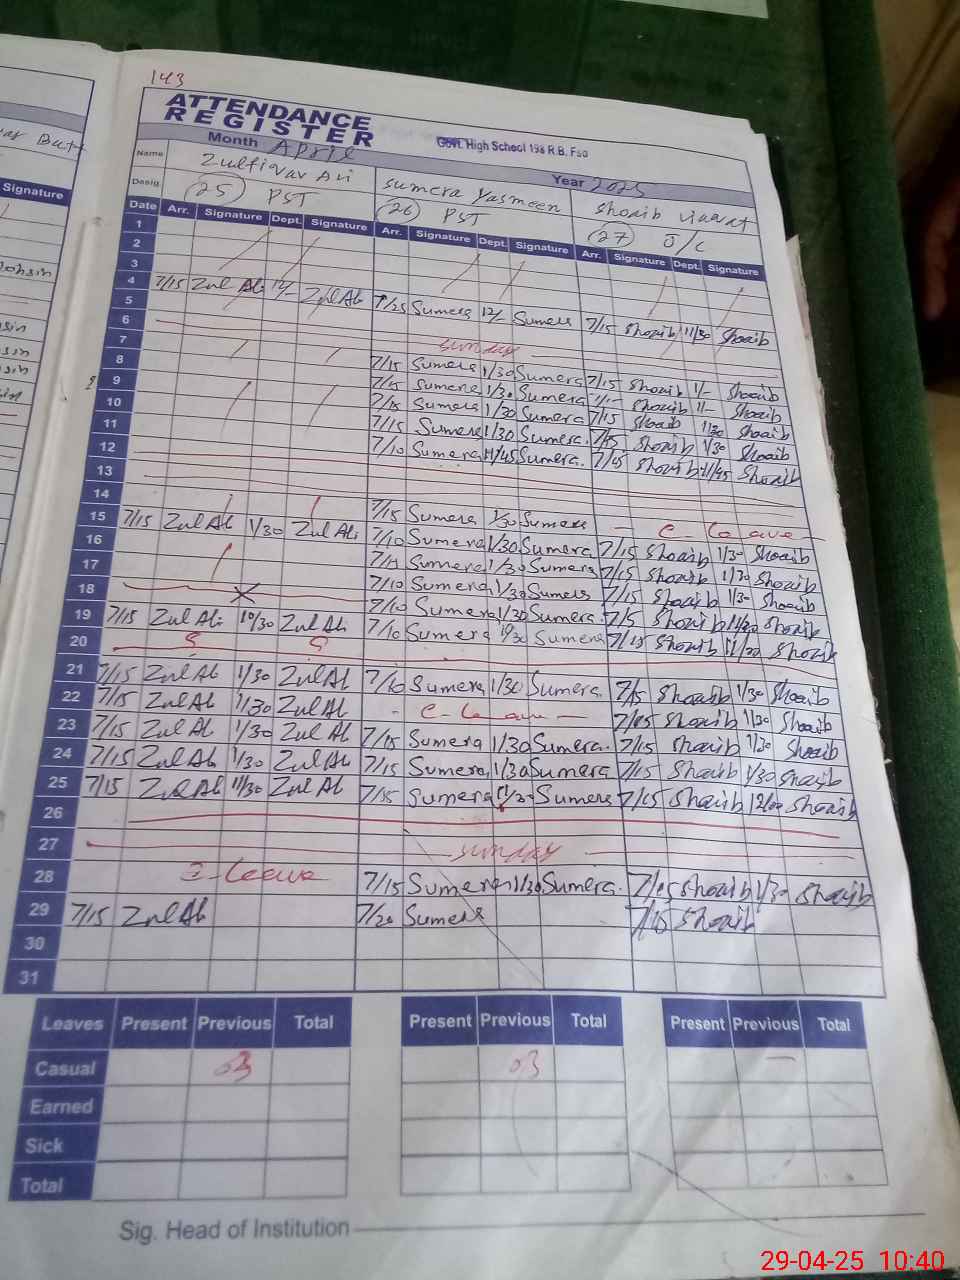 143
ATTENDANCE
REGISTER
Govt. High School 198 R.B. Fsd
Month April Year 2025
Name Zulfiqar Ali Sumera Yasmeen Shoaib
Desig. (25) PST (26) PST (27) J/C
Date Arr. Signature Dept. Signature Arr. Signature Dept. Signature Arr. Signature Dept. Signature
1
2
3
4 7/15 Zul Ali 12/- Zul Ali 7/25 Sumera 12/- Sumera 7/15 Shoaib 11/30 Shoaib
5
6 Sunday
7 7/15 Sumera 1/30 Sumera 7/15 Shoaib 1/- Shoaib
8 7/15 Sumera 1/30 Sumera Shoaib 1/- Shoaib
9 7/15 Sumera 1/30 Sumera 7/15 Shoaib 1/30 Shoaib
10 7/15 Sumera 1/30 Sumera 7/15 Shoaib 1/30 Shoaib
11 7/10 Sumera 11/45 Sumera 7/15 Shoaib 11/45 Shoaib
12
13
14 7/15 Sumera 1/30 Sumera - C-Leave -
15 7/15 Zul Ali 1/30 Zul Ali 7/10 Sumera 1/30 Sumera 7/15 Shoaib 1/30 Shoaib
16 7/15 Sumera 1/30 Sumera 7/15 Shoaib 1/30 Shoaib
17 7/10 Sumera 1/30 Sumera 7/15 Shoaib 1/30 Shoaib
18 7/10 Sumera 1/30 Sumera 7/15 Shoaib Shoaib
19 7/15 Zul Ali 10/30 Zul Ali 7/10 Sumera Sumera 7/15 Shoaib Shoaib
20 S S
21 7/15 Zul Ali 1/30 Zul Ali 7/10 Sumera 1/30 Sumera 7/15 Shoaib 1/30 Shoaib
22 7/15 Zul Ali 1/30 Zul Ali - C-Leave - 7/15 Shoaib 1/30 Shoaib
23 7/15 Zul Ali 1/30 Zul Ali 7/15 Sumera 1/30 Sumera 7/15 Shoaib 1/30 Shoaib
24 7/15 Zul Ali 1/30 Zul Ali 7/15 Sumera 1/30 Sumera 7/15 Shoaib 1/30 Shoaib
25 7/15 Zul Ali 11/30 Zul Ali 7/15 Sumera 11/30 Sumera 7/15 Shoaib 12/00 Shoaib
26
27 Sunday
28 C-Leave 7/15 Sumera 1/30 Sumera 7/15 Shoaib 1/30 Shoaib
29 7/15 Zul Ali 7/20 Sumera 7/15 Shoaib
30
31
Leaves Present Previous Total Present Previous Total Present Previous Total
Casual 03 03 -
Earned
Sick
Total
Sig. Head of Institution
Signature
29-04-25 10:40